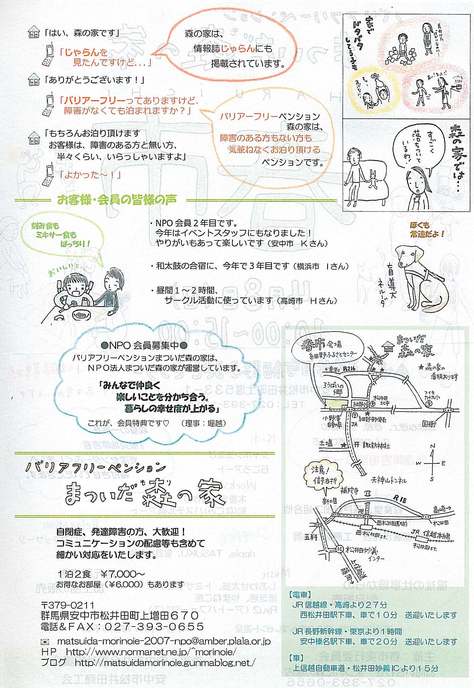 「はい、森の家です」
「じゃらんを
見たんですけど...」
森の家は、
情報誌じゃらんにも
掲載されています。
「ありがとうございます！」
「バリアーフリーってありますけど、
障害がなくても泊まれますか？」
バリアーフリーペンション
森の家は、
障害のある方もない方も
気兼ねなくお泊り頂ける
ペンションです。
「もちろんお泊り頂けます
お客様は、障害のある方と無い方、
半々くらい、いらっしゃいますよ」
「よかった～！」
家で
バタバタ
森の家では、
すっごく
落ちついて
いるわ。
お客様・会員の皆様の声
刻み食も
ミキサー食も
ばっちり！
おいしい
・NPO会員2年目です。
今年はイベントスタッフにもなりました！
やりがいもあって楽しいです（安中市 Kさん）
・和太鼓の合宿に、今年で3年目です（横浜市 Iさん）
・昼間1～2時間、
サークル活動に使っています（高崎市 Hさん）
ぼくも
常連だよ！
盲導犬
●NPO会員募集中●
バリアフリーペンションまついだ森の家は、
NPO法人まついだ森の家が運営しています。
「みんなで仲良く
楽しいことを分かち合う。
暮らしの幸せ度が上がる」
これが、会員特典です♡ （理事：堀越）
まついだ
森の家
バリアフリーペンション
まついだ 森の家
自閉症、発達障害の方、大歓迎！
コミュニケーションの配慮等も含めて
細かい対応をいたします。
1泊2食 ¥7,000～
お得なお部屋（¥6,000）もあります
〒379-0211
群馬県安中市松井田町上増田670
電話＆FAX：027-393-0655
✉ matsuida-morinoie-2007-npo@amber.plala.or.jp
HP http://www.normanet.ne.jp/~morinoie/
ブログ http://matsuidamorinoie.gunmablog.net/
注意！
R18
【電車】
JR信越線・高崎より27分
西松井田駅下車、車で10分 送迎いたします
JR長野新幹線・東京より1時間
安中榛名駅下車、車で20分 送迎いたします
【車】
上信越自動車道・松井田妙義ICより15分